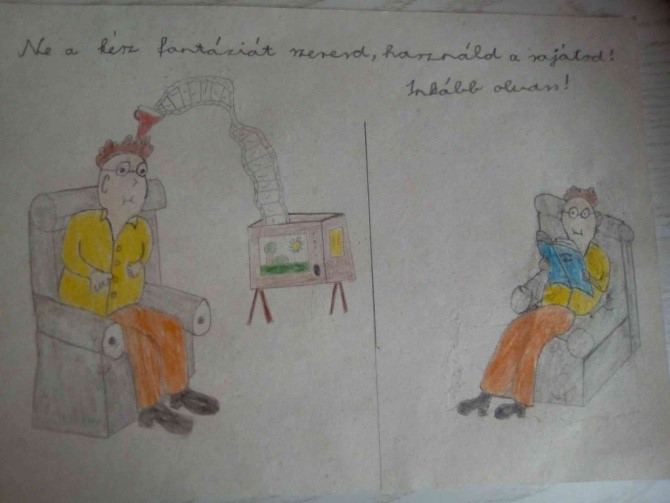 Ne a kész fantáziát szeresd, használd a sajátod!
Inkább olvass!